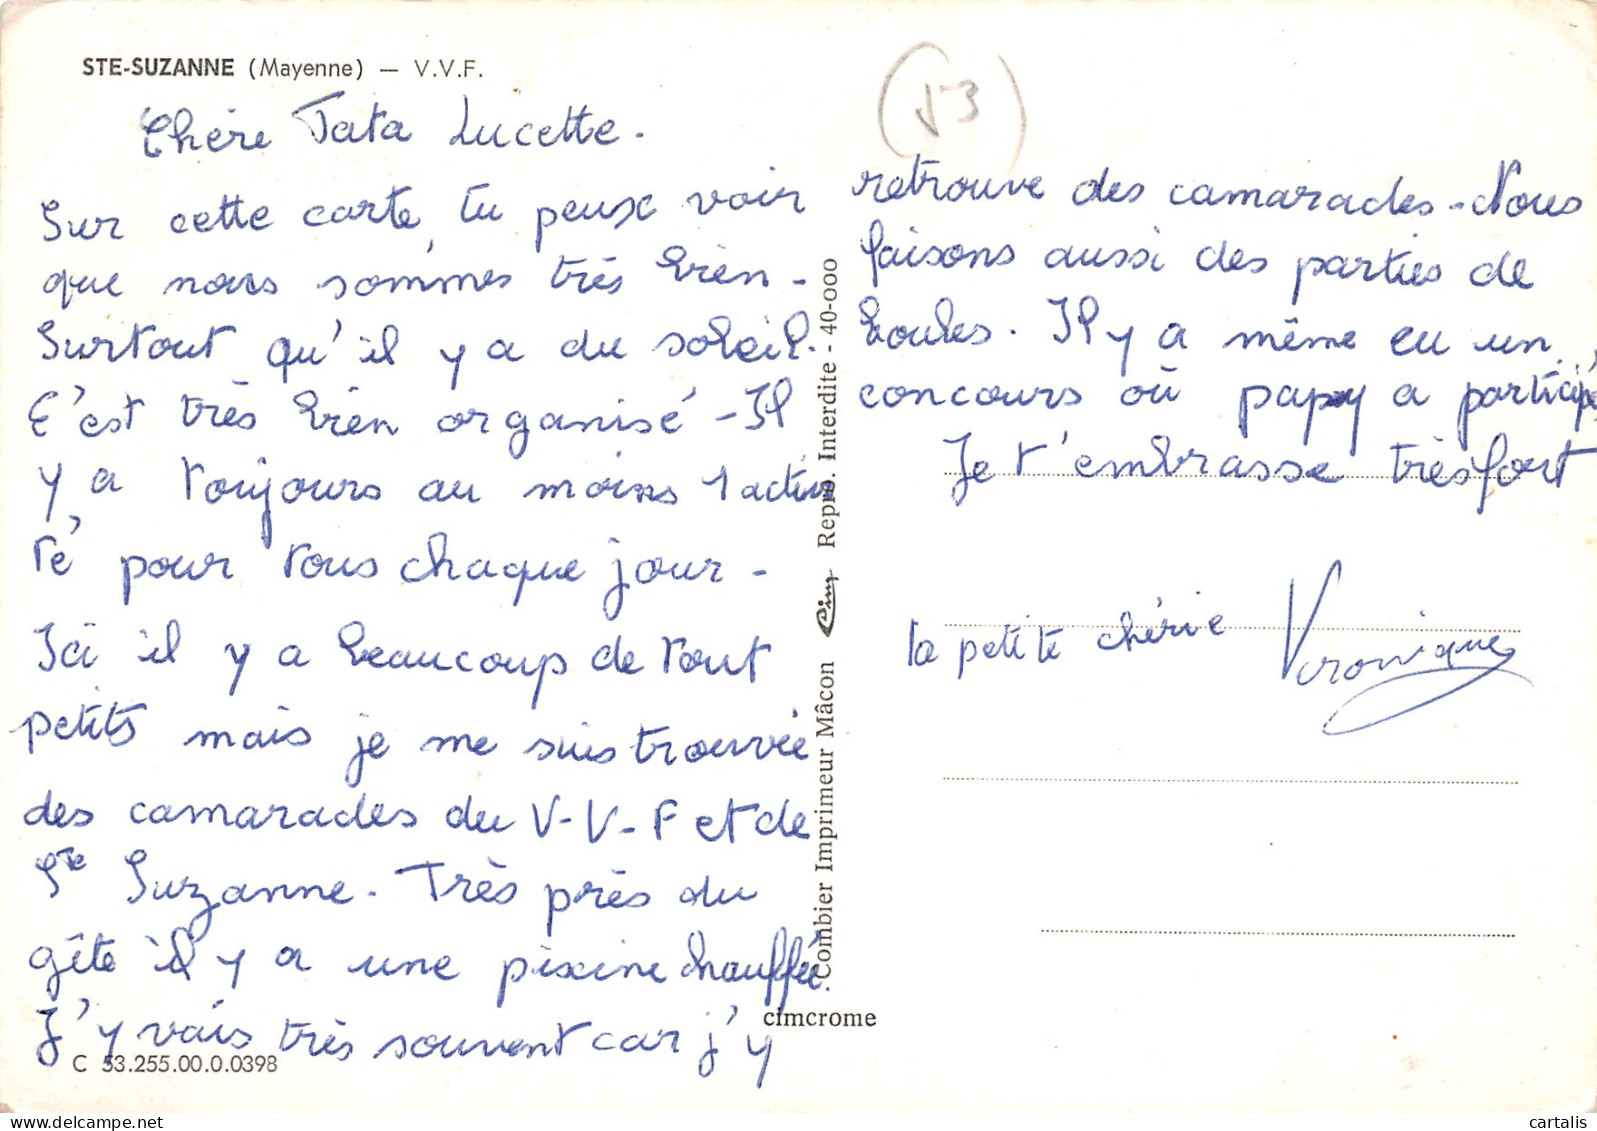 STE-SUZANNE (Mayenne) — V.V.F.
Chère Tata Lucette.
Sur cette carte, tu peux voir
que nous sommes très bien -
Surtout qu'il y a du soleil.
C'est très bien organisé - Il
y a toujours au moins 1 activi
té pour tous chaque jour -
Ici il y a beaucoup de tout
petits mais je me suis trouvée
des camarades du V-V-F et de
Ste Suzanne. Très près du
gîte il y a une piscine chauffée.
J'y vais très souvent car j'y
C 53.255.00.0.0398
(53)
retrouve des camarades - Nous
faisons aussi des parties de
boules. Il y a même eu un
concours où papy a participé,
Je t'embrasse très fort
la petite chérie Véronique
Combier Imprimeur Mâcon Cim Repro. Interdite - 40-000
cimcrome
cartalis